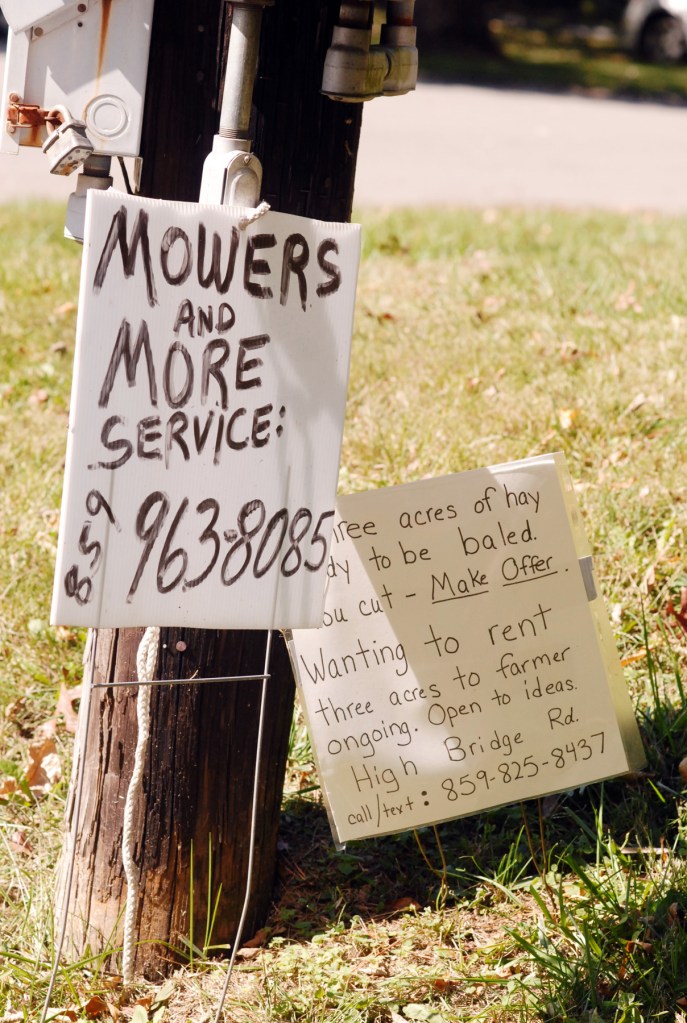 MOWERS
AND
MORE
SERVICE:
859 963-8085
acres of hay
to be baled.
cut - Make Offer.
Wanting to rent
three acres to farmer
ongoing. Open to ideas.
High Bridge Rd.
call/text: 859-825-8437